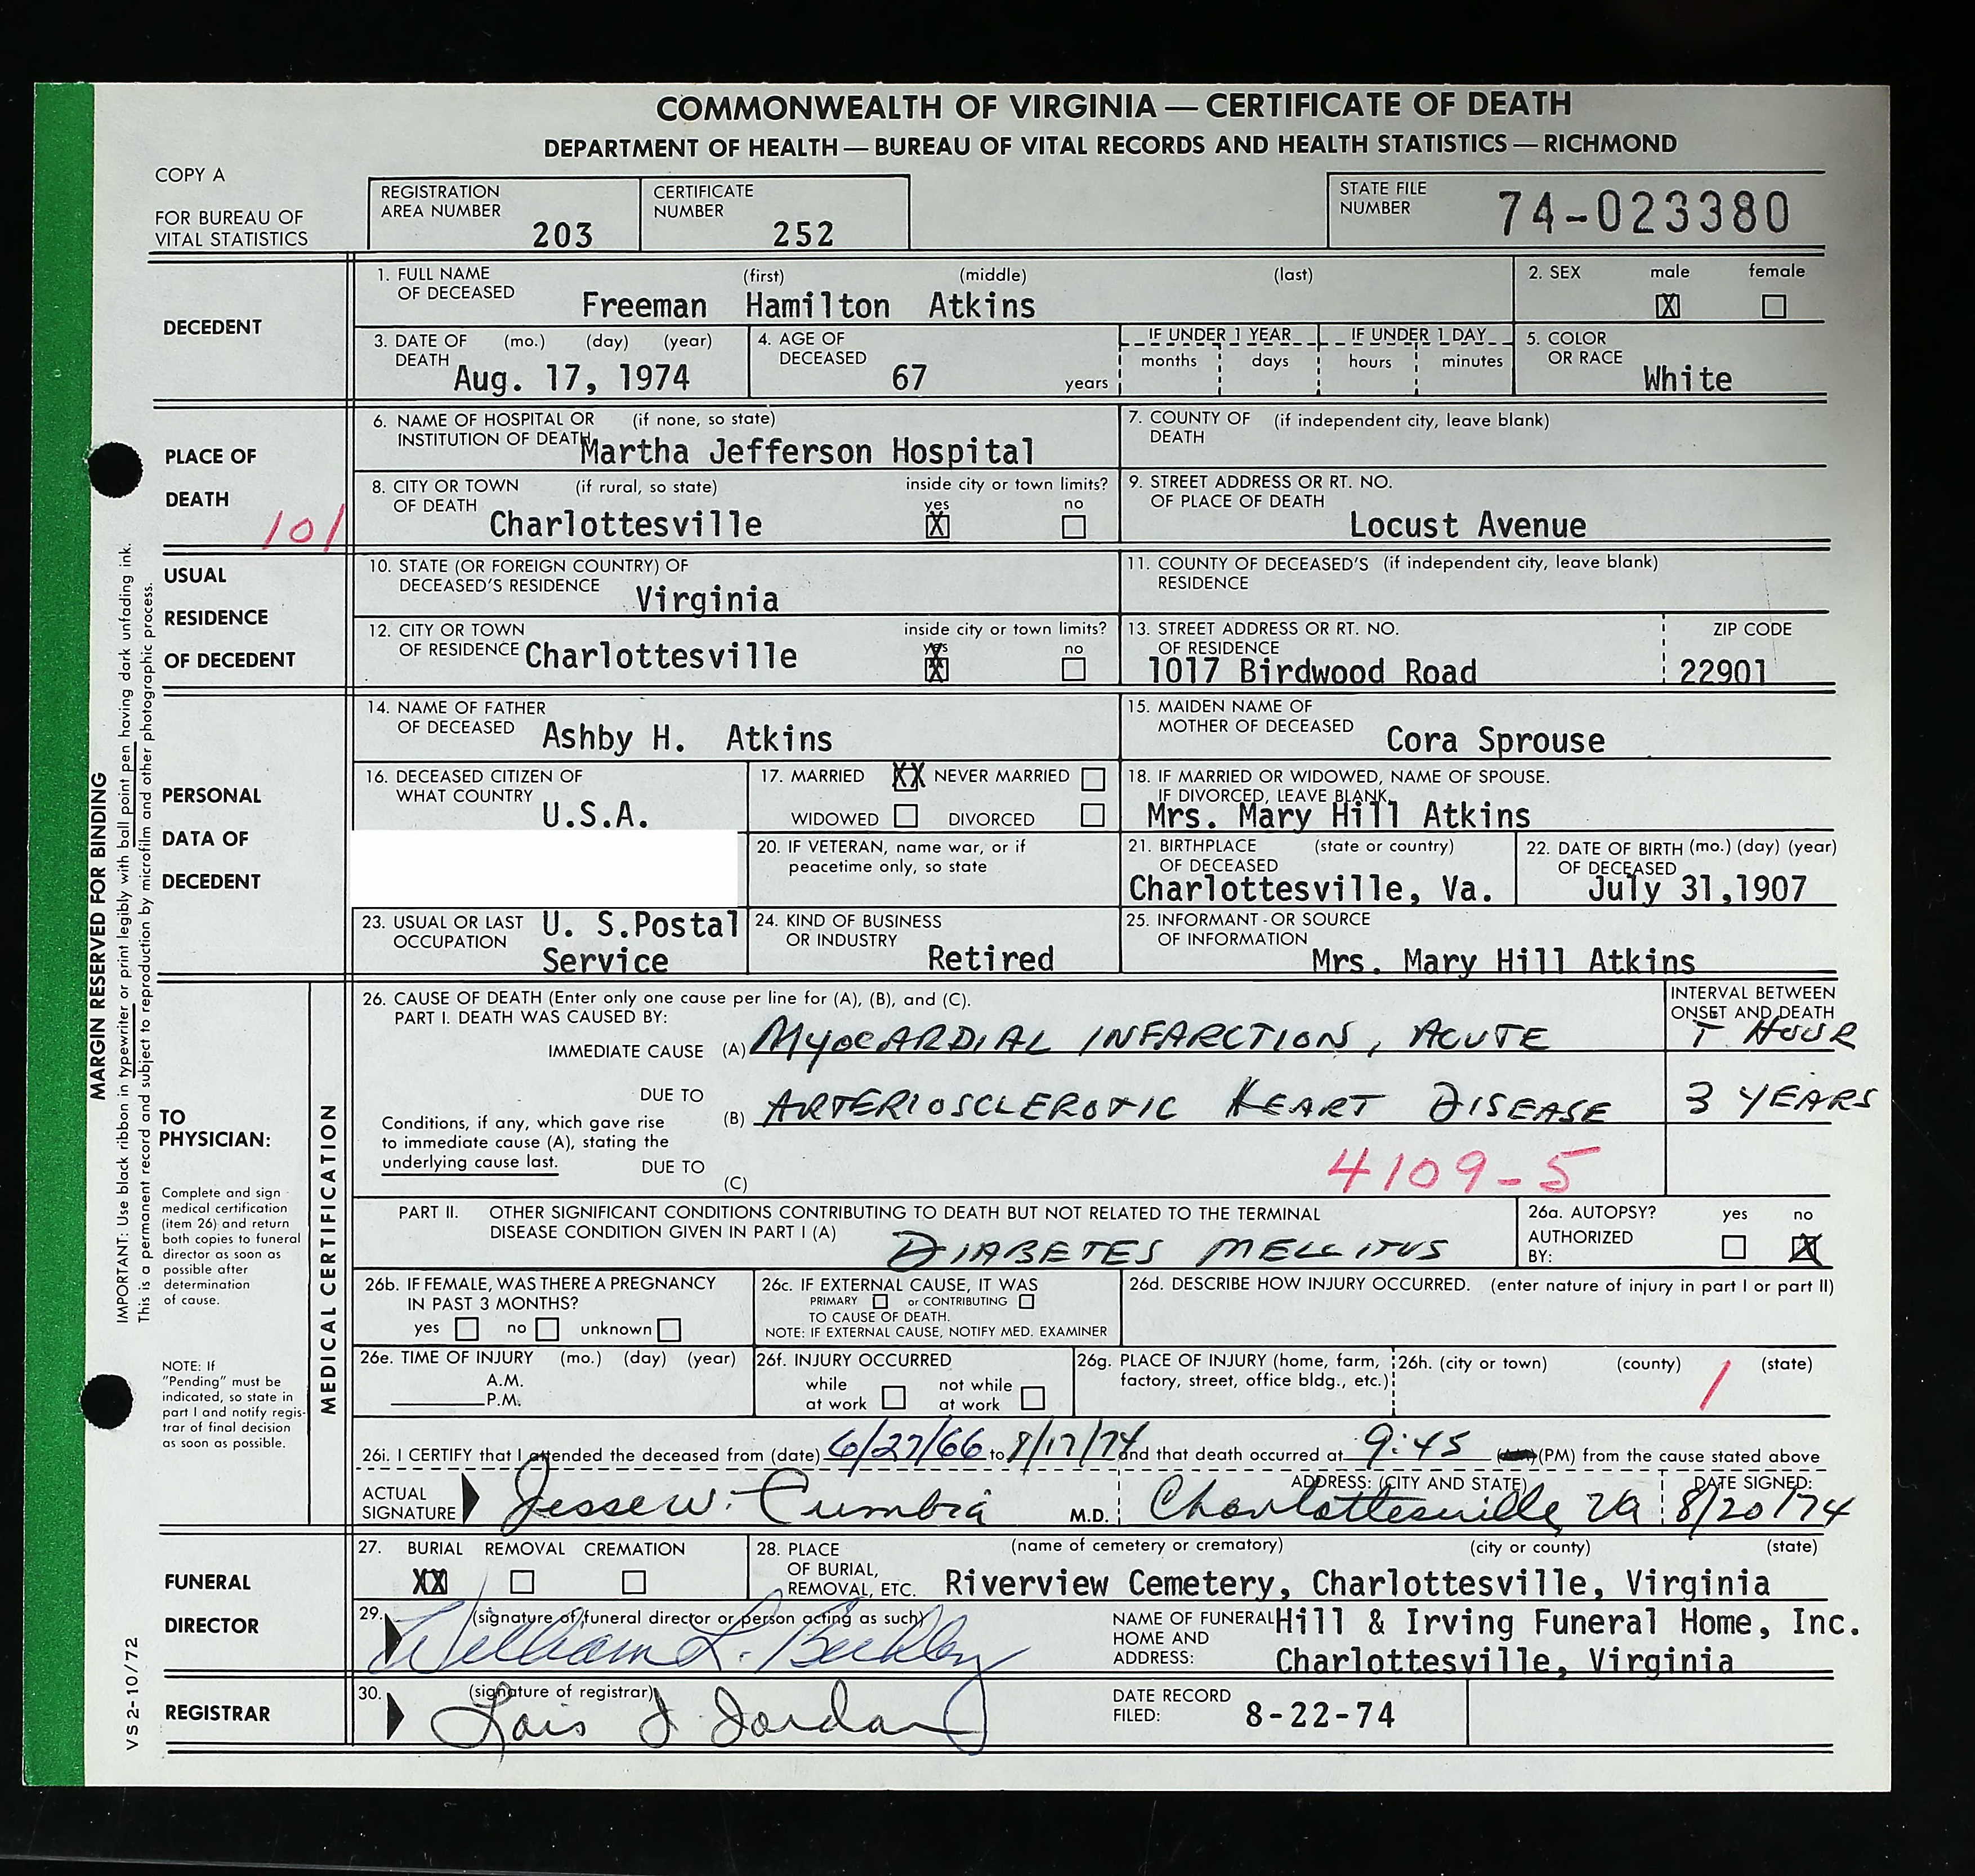 COMMONWEALTH OF VIRGINIA — CERTIFICATE OF DEATH
DEPARTMENT OF HEALTH — BUREAU OF VITAL RECORDS AND HEALTH STATISTICS — RICHMOND
COPY A
FOR BUREAU OF
VITAL STATISTICS
REGISTRATION
AREA NUMBER 203
CERTIFICATE
NUMBER 252
STATE FILE
NUMBER 74-023380
DECEDENT
1. FULL NAME (first) (middle) (last)
OF DECEASED Freeman Hamilton Atkins
2. SEX male female
X
3. DATE OF (mo.) (day) (year)
DEATH Aug. 17, 1974
4. AGE OF
DECEASED 67 years
IF UNDER 1 YEAR IF UNDER 1 DAY
months days hours minutes
5. COLOR
OR RACE White
PLACE OF
DEATH
101
6. NAME OF HOSPITAL OR (if none, so state)
INSTITUTION OF DEATH Martha Jefferson Hospital
7. COUNTY OF (if independent city, leave blank)
DEATH
8. CITY OR TOWN (if rural, so state) inside city or town limits?
OF DEATH Charlottesville yes X no
9. STREET ADDRESS OR RT. NO.
OF PLACE OF DEATH
Locust Avenue
USUAL
RESIDENCE
OF DECEDENT
10. STATE (OR FOREIGN COUNTRY) OF
DECEASED'S RESIDENCE Virginia
11. COUNTY OF DECEASED'S (if independent city, leave blank)
RESIDENCE
12. CITY OR TOWN inside city or town limits?
OF RESIDENCE Charlottesville yes X no
13. STREET ADDRESS OR RT. NO. ZIP CODE
OF RESIDENCE
1017 Birdwood Road 22901
PERSONAL
DATA OF
DECEDENT
14. NAME OF FATHER
OF DECEASED Ashby H. Atkins
15. MAIDEN NAME OF
MOTHER OF DECEASED Cora Sprouse
16. DECEASED CITIZEN OF
WHAT COUNTRY U.S.A.
17. MARRIED XX NEVER MARRIED
WIDOWED DIVORCED
18. IF MARRIED OR WIDOWED, NAME OF SPOUSE.
IF DIVORCED, LEAVE BLANK.
Mrs. Mary Hill Atkins
20. IF VETERAN, name war, or if
peacetime only, so state
21. BIRTHPLACE (state or country)
OF DECEASED
Charlottesville, Va.
22. DATE OF BIRTH (mo.) (day) (year)
OF DECEASED
July 31,1907
23. USUAL OR LAST U. S.Postal
OCCUPATION Service
24. KIND OF BUSINESS
OR INDUSTRY Retired
25. INFORMANT - OR SOURCE
OF INFORMATION
Mrs. Mary Hill Atkins
TO
PHYSICIAN:
Complete and sign
medical certification
(item 26) and return
both copies to funeral
director as soon as
possible after
determination
of cause.
NOTE: If
"Pending" must be
indicated, so state in
part I and notify regis-
trar of final decision
as soon as possible.
MEDICAL CERTIFICATION
26. CAUSE OF DEATH (Enter only one cause per line for (A), (B), and (C).
PART I. DEATH WAS CAUSED BY:
INTERVAL BETWEEN
ONSET AND DEATH
IMMEDIATE CAUSE (A) MYOCARDIAL INFARCTION, ACUTE 1 HOUR
DUE TO
(B) ARTERIOSCLEROTIC HEART DISEASE 3 YEARS
Conditions, if any, which gave rise
to immediate cause (A), stating the
underlying cause last. DUE TO
(C)
4109-5
PART II. OTHER SIGNIFICANT CONDITIONS CONTRIBUTING TO DEATH BUT NOT RELATED TO THE TERMINAL
DISEASE CONDITION GIVEN IN PART I (A)
DIABETES MELLITUS
26a. AUTOPSY? yes no
AUTHORIZED
BY: X
26b. IF FEMALE, WAS THERE A PREGNANCY
IN PAST 3 MONTHS?
yes no unknown
26c. IF EXTERNAL CAUSE, IT WAS
PRIMARY or CONTRIBUTING
TO CAUSE OF DEATH.
NOTE: IF EXTERNAL CAUSE, NOTIFY MED. EXAMINER
26d. DESCRIBE HOW INJURY OCCURRED. (enter nature of injury in part I or part II)
26e. TIME OF INJURY (mo.) (day) (year)
A.M.
P.M.
26f. INJURY OCCURRED
while not while
at work at work
26g. PLACE OF INJURY (home, farm,
factory, street, office bldg., etc.)
26h. (city or town) (county) (state)
1
26i. I CERTIFY that I attended the deceased from (date) 6/27/66 to 8/17/74 and that death occurred at 9:45 (PM) from the cause stated above
ACTUAL
SIGNATURE Jesse W. Cumbia M.D.
ADDRESS: (CITY AND STATE)
Charlottesville Va
DATE SIGNED:
8/20/74
FUNERAL
DIRECTOR
27. BURIAL REMOVAL CREMATION
XX
28. PLACE (name of cemetery or crematory) (city or county) (state)
OF BURIAL,
REMOVAL, ETC. Riverview Cemetery, Charlottesville, Virginia
29. (signature of funeral director or person acting as such)
William L.
NAME OF FUNERAL Hill & Irving Funeral Home, Inc.
HOME AND
ADDRESS: Charlottesville, Virginia
REGISTRAR
30. (signature of registrar)
Lois J Jordan
DATE RECORD
FILED: 8-22-74
MARGIN RESERVED FOR BINDING
IMPORTANT: Use black ribbon in typewriter or print legibly with ball point pen having dark unfading ink.
This is a permanent record and subject to reproduction by microfilm and other photographic process.
VS 2-10/72